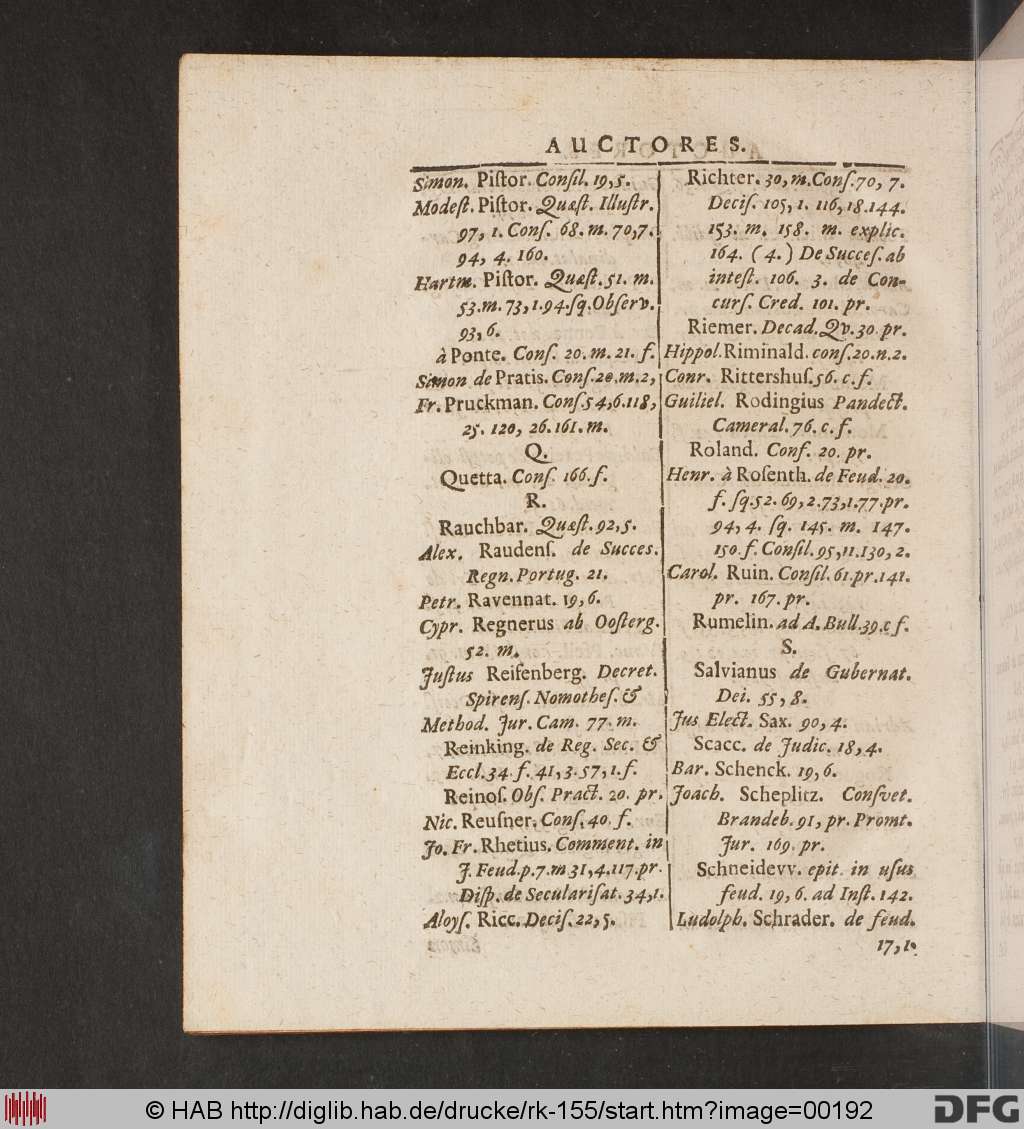 AUCTORES.
Simon. Piſtor. Conſil. 19, 5.
Modeſt. Piſtor. Quæſt. Illuſtr.
97, 1. Conſ. 68. m. 70, 7.
94, 4. 160.
Hartm. Piſtor. Quæſt. 51. m.
53. m. 73, 1. 94. ſq. Obſerv.
93, 6.
à Ponte. Conſ. 20. m. 21. f.
Simon de Pratis. Conſ. 20. m. 2,
Fr. Pruckman. Conſ. 54, 6. 118,
25. 120, 26. 161. m.
Q.
Quetta. Conſ. 166. f.
R.
Rauchbar. Quæſt. 92, 5.
Alex. Raudenſ. de Succes.
Regn. Portug. 21.
Petr. Ravennat. 19, 6.
Cypr. Regnerus ab Ooſterg.
52. m.
Juſtus Reifenberg. Decret.
Spirenſ. Nomotheſ. &
Method. Jur. Cam. 77. m.
Reinking. de Reg. Sec. &
Eccl. 34. f. 41, 3. 57, 1. f.
Reinoſ. Obſ. Pract. 20. pr.
Nic. Reuſner. Conſ. 40. f.
Jo. Fr. Rhetius. Comment. in
J. Feud. p. 7. m 31, 4. 117. pr.
Diſp. de Seculariſat. 34, 1.
Aloyſ. Ricc. Deciſ. 22, 5.
Richter. 30, m. Conſ. 70, 7.
Deciſ. 105, 1. 116, 18. 144.
153. m. 158. m. explic.
164. (4.) De Succeſ. ab
inteſt. 106. 3. de Con-
curſ. Cred. 101. pr.
Riemer. Decad. Qv. 30. pr.
Hippol. Riminald. conſ. 20. n. 2.
Conr. Rittershuſ. 56. c. f.
Guiliel. Rodingius Pandect.
Cameral. 76. c. f.
Roland. Conſ. 20. pr.
Henr. à Roſenth. de Feud. 20.
f. ſq. 52. 69, 2. 73, 1. 77. pr.
94, 4. ſq. 145. m. 147.
150. f. Conſil. 95, 11. 130, 2.
Carol. Ruin. Conſil. 61. pr. 141.
pr. 167. pr.
Rumelin. ad A. Bull. 39. c f.
S.
Salvianus de Gubernat.
Dei. 55, 8.
Jus Elect. Sax. 90, 4.
Scacc. de Judic. 18, 4.
Bar. Schenck. 19, 6.
Joach. Scheplitz. Conſvet.
Brandeb. 91, pr. Promt.
Jur. 169. pr.
Schneidevv. epit. in uſus
feud. 19, 6. ad Inſt. 142.
Ludolph. Schrader. de feud.
17, 1.
© HAB http://diglib.hab.de/drucke/rk-155/start.htm?image=00192
DFG